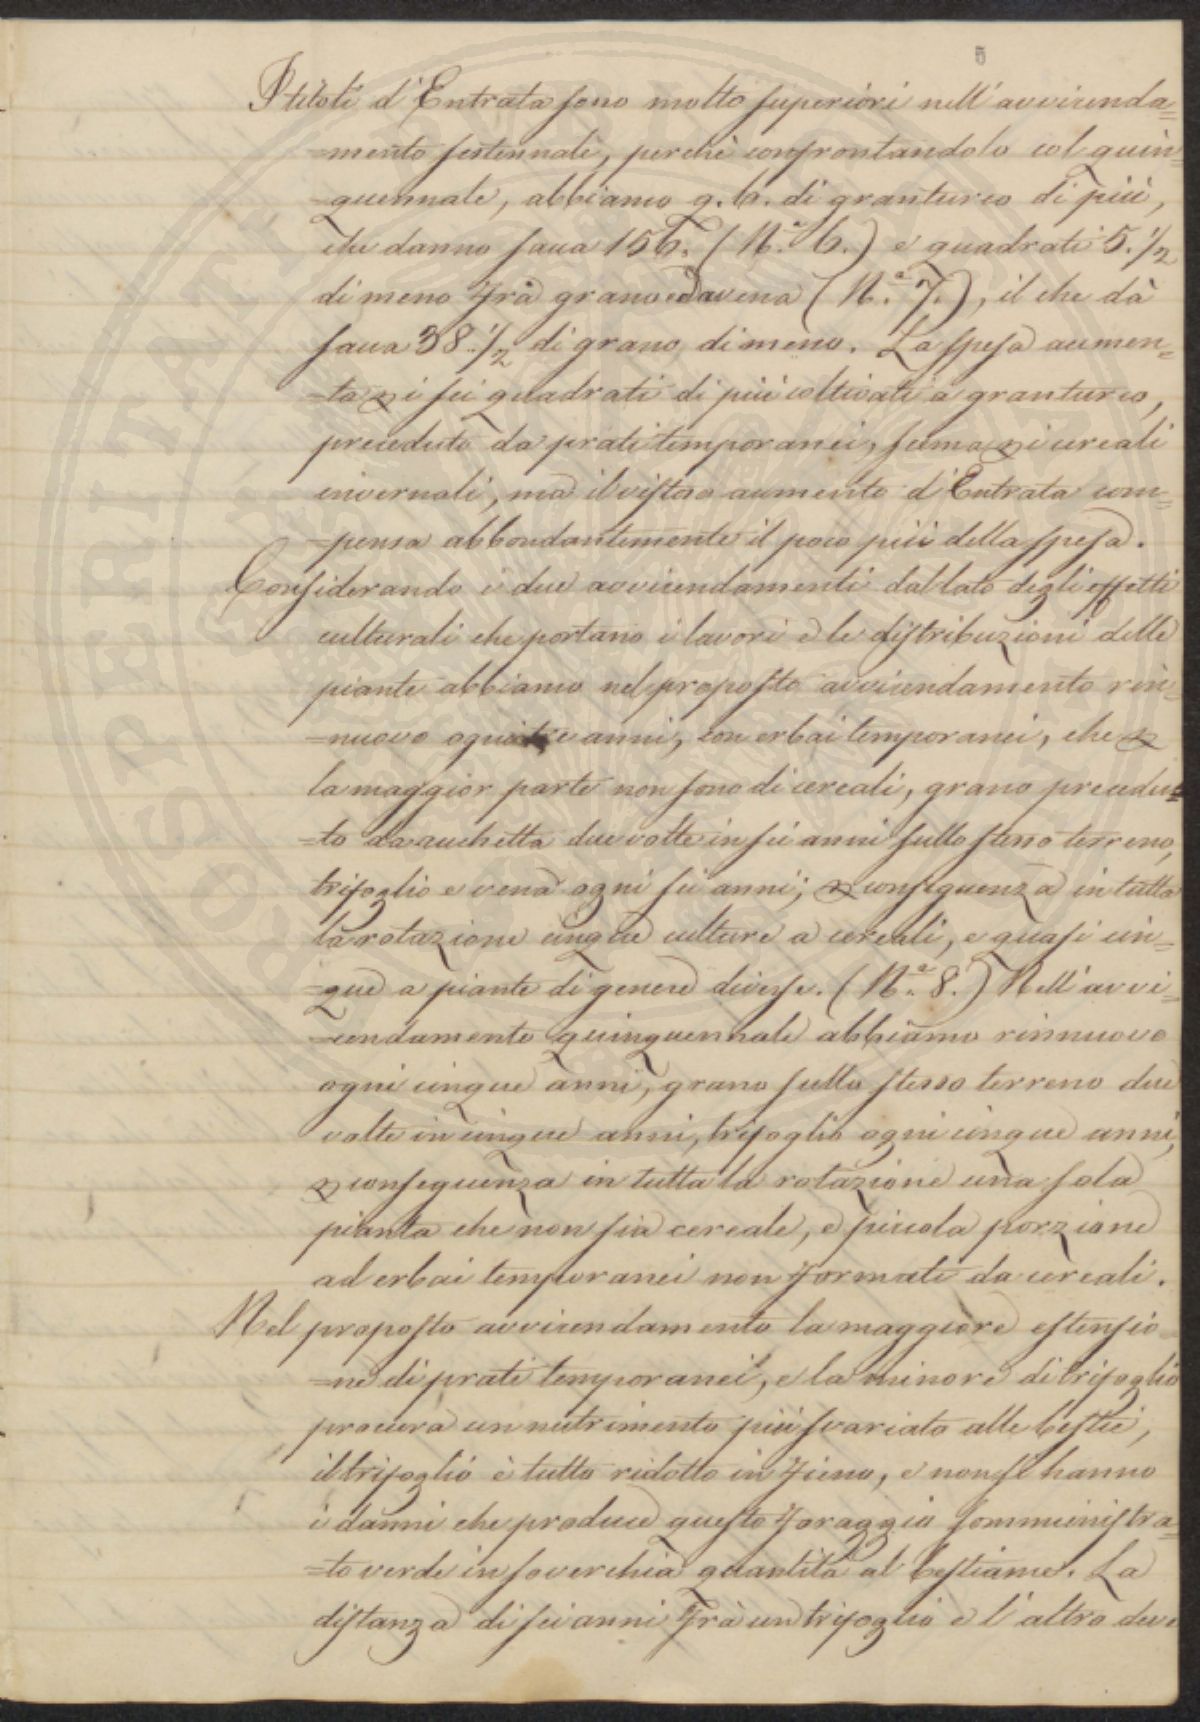 5
I titoli d'Entrata sono molto superiori nell'avvicenda=
=mento sestennale, perchè confrontandolo col quin=
=quennale, abbiamo q. 6. di granturco di più,
che danno saca 156. (N.º 6.) e quadrati 5.½
di meno frà grano ed avena (N.º 7.), il che dà
saca 38.½ di grano di meno. La spesa aumen=
=ta p i sei quadrati di più coltivati a granturco,
preceduto da prati temporanei, scema p i cereali
invernali, ma il vistoso aumento d'Entrata com=
=pensa abbondantemente il poco più della spesa.
Considerando i due avvicendamenti dal lato degli effetti
culturali che portano i lavori e le distribuzioni delle
piante abbiamo nel proposto avvicendamento rin=
=nuovo ogni tre anni, con erbai temporanei, che p
la maggior parte non sono di cereali, grano precedu=
=to da ruchetta due volte in sei anni sullo stesso terreno,
trifoglio e vena ogni sei anni; p conseguenza in tutta
la rotazione cinque culture a cereali, e quasi cin=
=que a piante di genere diverse. (N.º 8.) Nell'avvi=
=cendamento quinquennale abbiamo rinnuovo
ogni cinque anni, grano sullo stesso terreno due
volte in cinque anni, trifoglio ogni cinque anni,
p conseguenza in tutta la rotazione una sola
pianta che non sia cereale, e piccola porzione
ad erbai temporanei non formati da cereali.
Nel proposto avvicendamento la maggiore estensio=
=ne di prati temporanei, e la minore di trifoglio
procura un nutrimento più svariato alle bestie,
il trifoglio è tutto ridotto in fieno, e non si hanno
i danni che produce questo foraggio somministra=
=to verde in soverchia quantità al bestiame. La
distanza di sei anni frà un trifoglio e l'altro deve
PROSPERITATI PUBLICAE